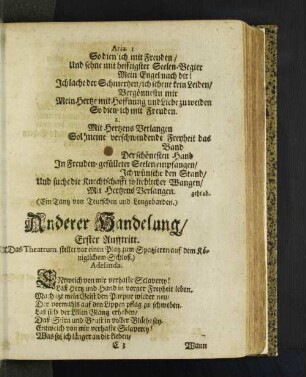 Aria. 1
So dien' ich mit Freuden/
Und sehne mit hefftigster Seelen-Begier
Mein Engel nach dir!
Ich lache der Schmertzen/ ich scheue kein Leiden/
Vergönnestu mir
Mein Hertze mit Hoffnung und Liebe zu weiden
So dien ich mit Freuden.
2.
Mit Hertzens Verlangen
Sol meine verschwendende Freyheit das
Band
Der schönesten Hand
In Freuden-gefülleter Seelen empfangen/
Ich wünsche den Stand/
Und suche die Knechtschafft so lieblicher Wangen/
Mit Hertzens Verlangen.
geht ab.
(Ein Tantz von Teutschen und Longobarden.)
Anderer Handelung/
Erster Aufftritt.
Das Theatrum stellet vor einen Platz zum Spatzieren auf dem Kö-
niglichem Schloß.)
Adelinda.
Entweich von mir verhaste Sclaverey!
Laß Hertz und Hand in voriger Freyheit leben,
mein Geist den Purpur wieder neu/
Der vormahls auf den Lippen pflag zu schweben.
Laß sich der Lilien Glantz erheben/
Daß Stirn und Brust in voller Blüthe sey.
Entweich von mir verhaste Sclaverey!
Was sol ich länger an die kleben/
E 3
Wann